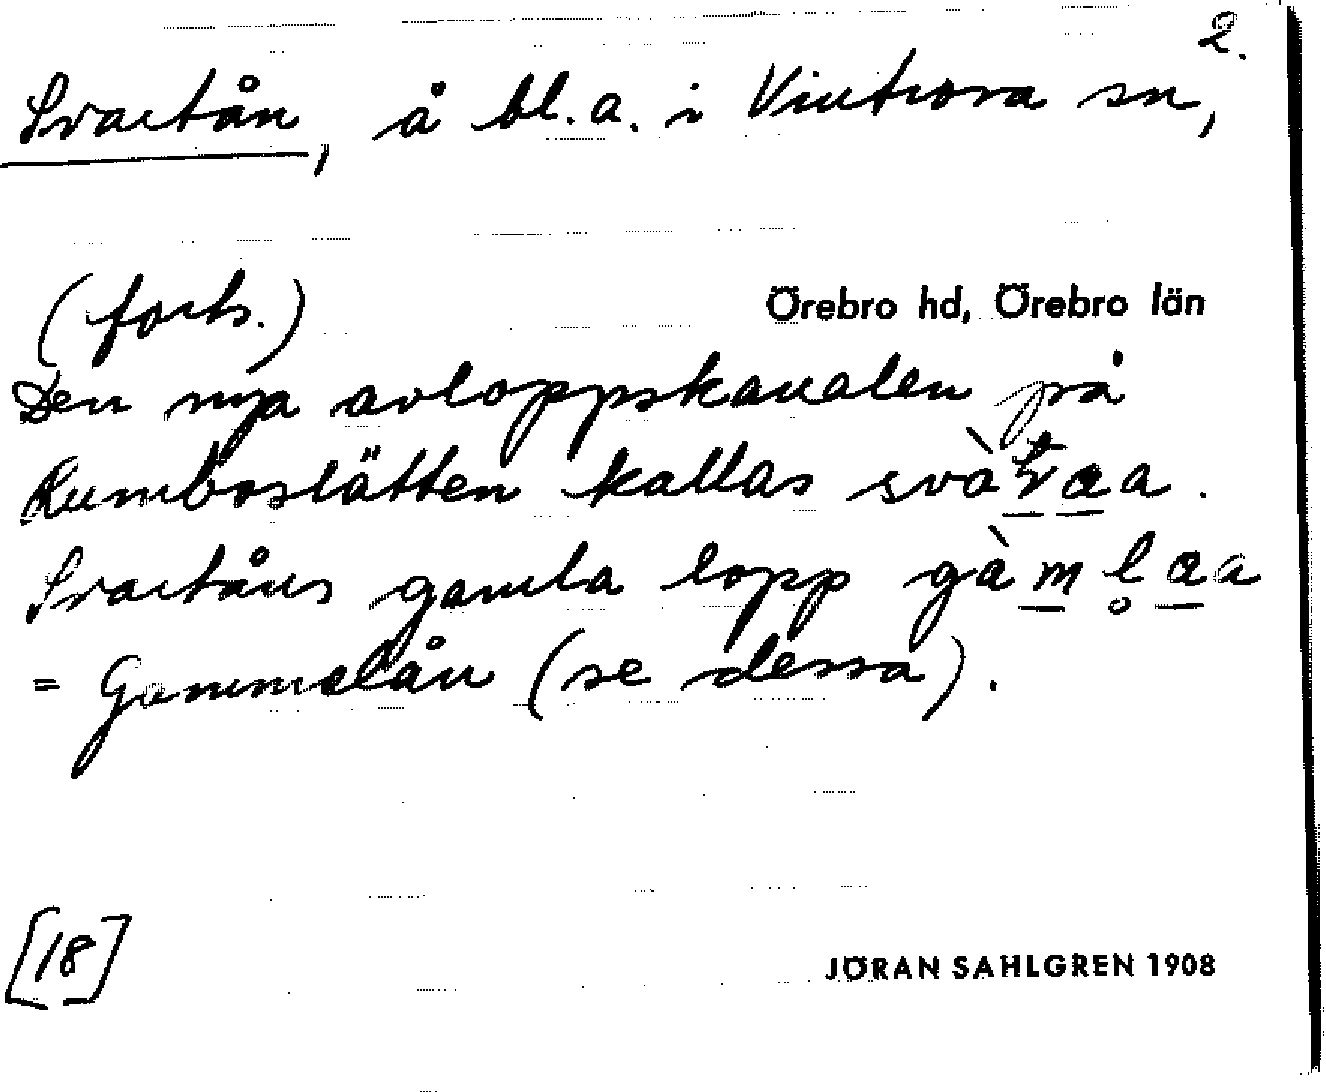 2.
Svartån, å bl.a. i Vintrosa sn,
(forts.) Örebro hd, Örebro län
Den nya avloppskanalen på
Rumboslätten kallas
Svartåns gamla lopp gàmlaa
= Gammelån (se dessa).
[18] JÖRAN SAHLGREN 1908